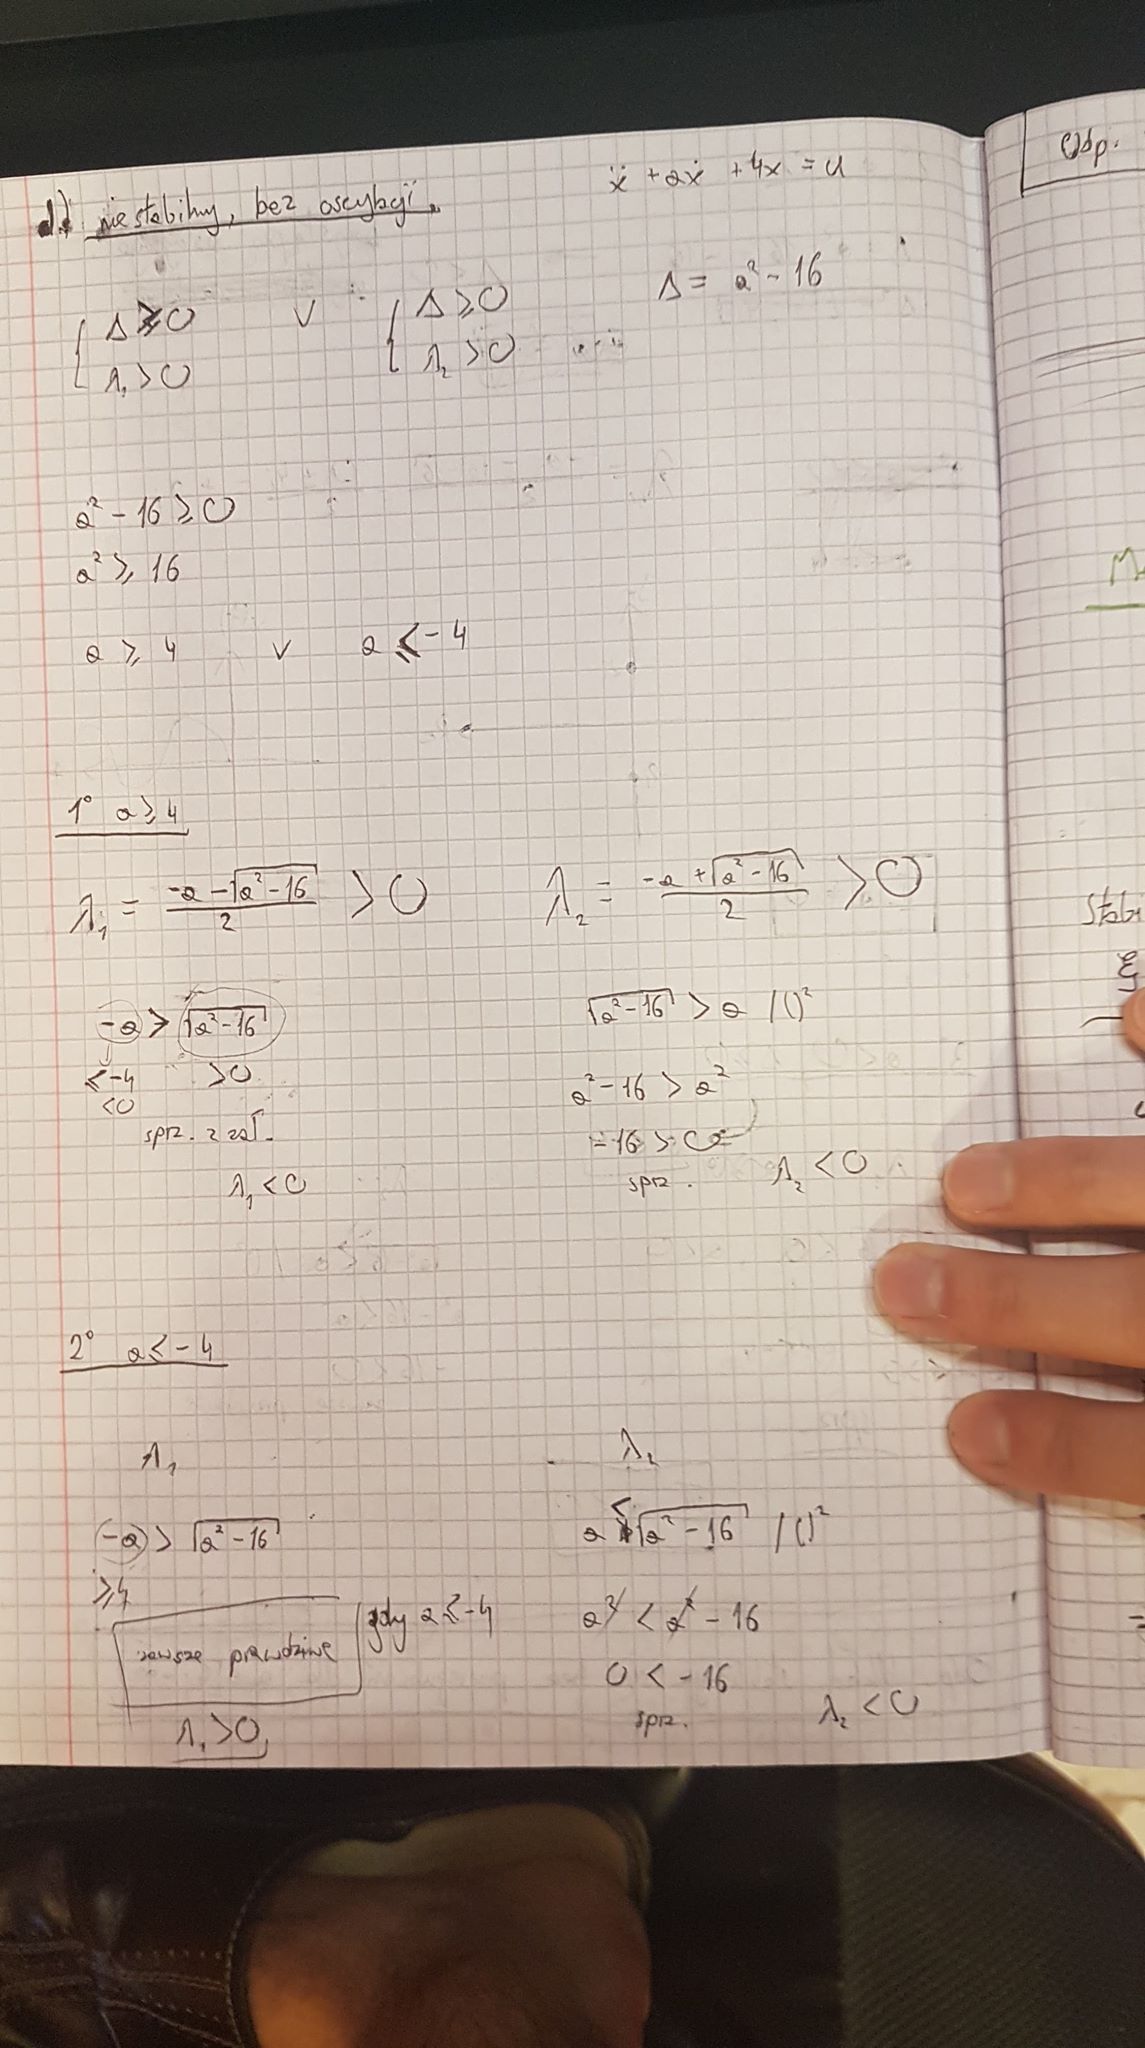 d.) niestabilny, bez oscylacji.
ẍ + aẋ + 4x = u
Δ ≥ 0 ∨ Δ ≥ 0
λ₁ > 0 λ₂ > 0
Δ = a² - 16
a² - 16 ≥ 0
a² ≥ 16
a ≥ 4 ∨ a ≤ -4
1° a ≥ 4
λ₁ = (-a - √(a² - 16))/2 > 0
-a > √(a² - 16)
≤ -4 > 0
< 0
sprz. z zał.
λ₁ < 0
λ₂ = (-a + √(a² - 16))/2 > 0
√(a² - 16) > a /()²
a² - 16 > a²
-16 > 0
sprz. λ₂ < 0
2° a ≤ -4
λ₁
-a > √(a² - 16)
≥ 4
zawsze prawdziwe gdy a ≤ -4
λ₁ > 0
λ₂
a < √(a² - 16) /()²
a² < a² - 16
0 < -16
sprz. λ₂ < 0
Odp.
Stabi